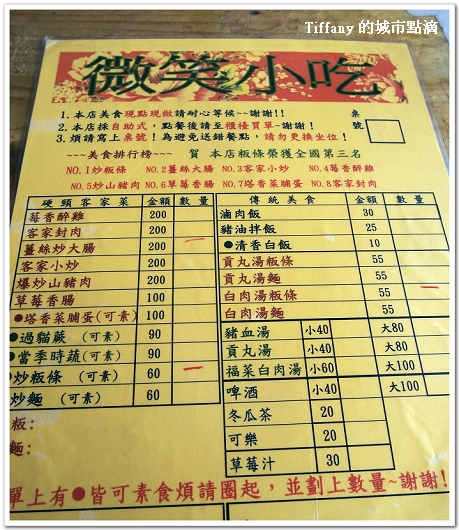 Tiffany 的城市點滴
微笑小吃
1.本店美食現點現做請耐心等候~~謝謝!!
2.本店採自助式，點餐後請至櫃檯買單~謝謝!
3.煩請寫上桌號!為避免送錯餐點，請勿更換坐位!
桌號
~~~美食排行榜~~~ 賀 本店粄條榮獲全國第三名
NO.1炒粄條 NO.2薑絲大腸 NO.3客家小炒 NO.4莓香醉雞
NO.5炒山豬肉 NO.6草莓香腸 NO.7塔香菜脯蛋 NO.8客家封肉
硬頸客家菜 金額 數量
莓香醉雞 200
客家封肉 200
薑絲炒大腸 200
客家小炒 200
爆炒山豬肉 200
草莓香腸 100
●塔香菜脯蛋(可素) 100
●過貓蕨 (可素) 90
●當季時蔬(可素) 90
●炒粄條 (可素) 60
炒麵 (可素) 60
粄:
麵:
傳統美食 金額 數量
滷肉飯 30
豬油拌飯 25
●清香白飯 10
貢丸湯粄條 55
貢丸湯麵 55
白肉湯粄條 55
白肉湯麵 55
豬血湯 小40 大80
貢丸湯 小40 大80
福菜白肉湯 小60 大100
啤酒 小40 大100
冬瓜茶 20
可樂 20
草莓汁 30
單上有●皆可素食煩請圈起，並劃上數量~謝謝!